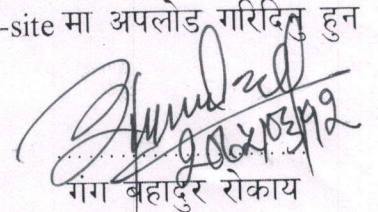 -site मा अपलोड गरिदिनु हुन
गंग बहादुर रोकाय